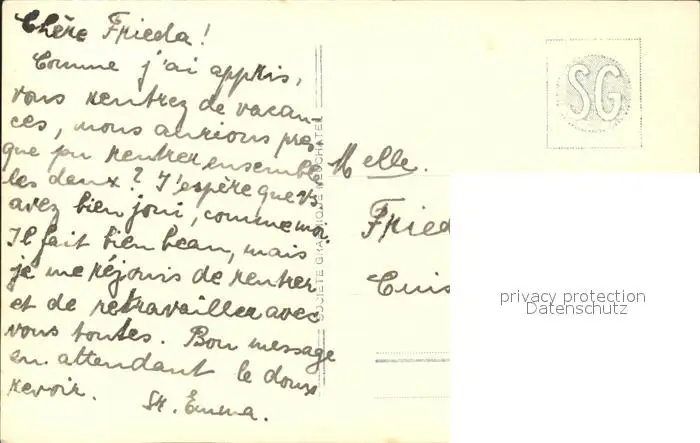 Chère Frieda!
Comme j'ai appris,
vous rentrez de vacan-
ces, nous aurions pres-
que pu rentrer ensemble
les deux? J'espère que vs
avez bien joui, comme moi.
Il fait bien beau, mais
je me réjouis de rentrer
et de retravailler avec
vous toutes. Bon message
en attendant le doux
revoir. Sr. Emma.
SOCIÉTÉ GRAPHIQUE NEUCHATEL
SG
Melle.
Fried
Cuis
privacy protection
Datenschutz